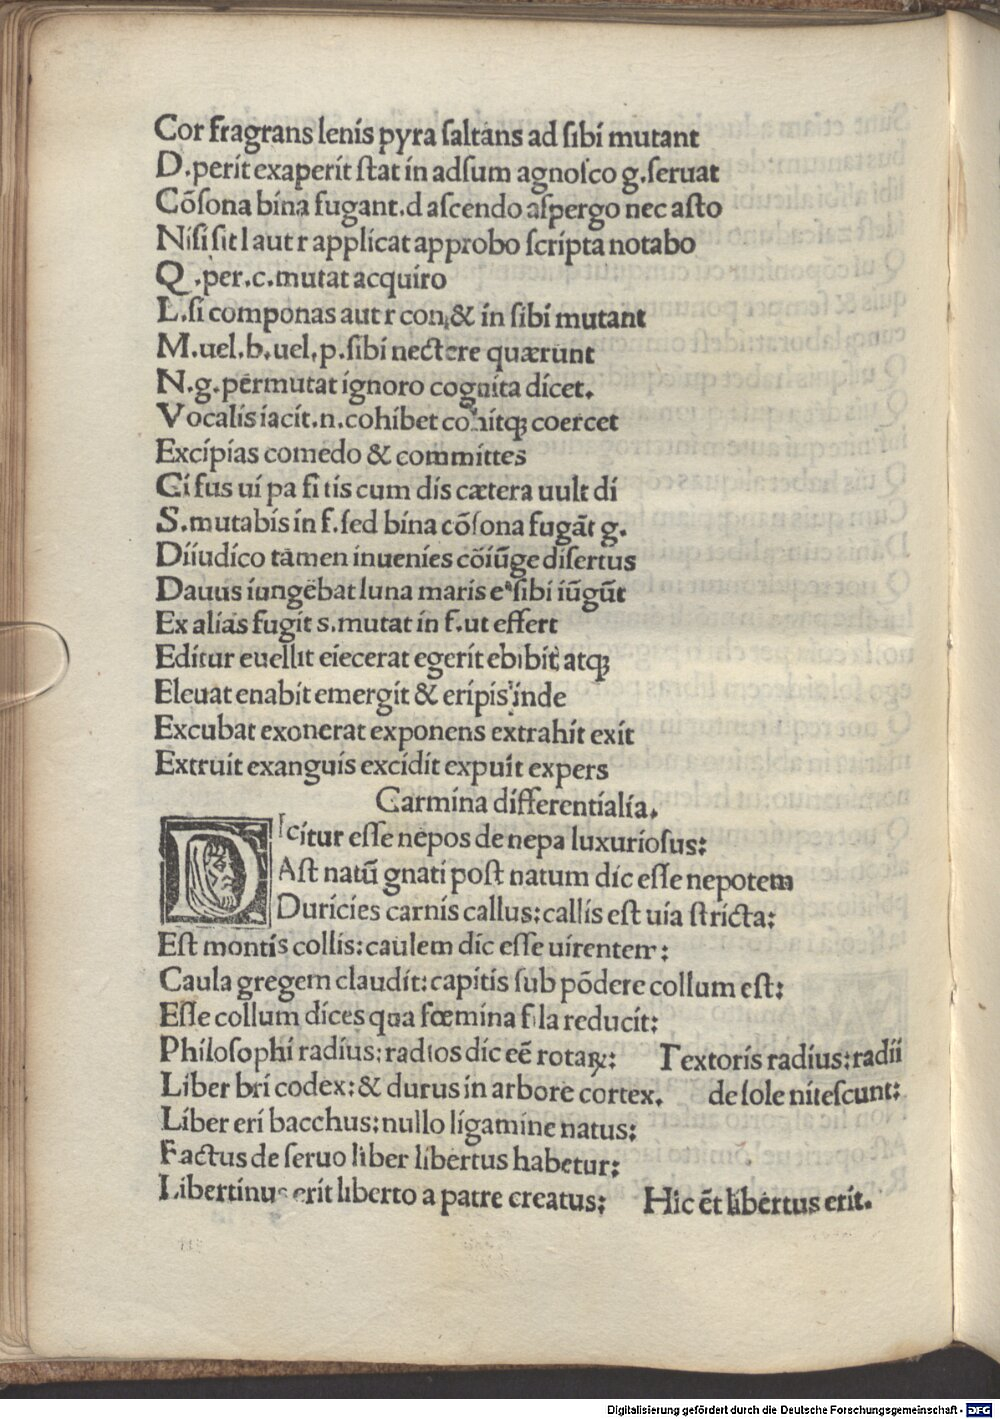 Cor fragrans lenis pyra ſaltans ad ſibi mutant
D.perit exaperit ſtat in adſum agnoſco g.ſeruat
Cõſona bina fugant.d aſcendo aſpergo nec aſto
Niſi ſit l aut r applicat approbo ſcripta notabo
Q .per.c.mutat acquiro
L.ſi componas aut r con,& in ſibi mutant
M.uel.b.uel.p.ſibi nectere quærunt
N.g.permutat ignoro cognita dicet.
Vocalis iacit.n.cohibet cohitqꝫ coercet
Excipias comedo & committes
Gi fus ui pa fi tis cum dis cætera uult di
S.mutabis in f.ſed bina cõſona fugãt g.
Diiudico tamen inuenies cõiũge diſertus
Dauus iungebat luna maris e ſibi iũgũt
Ex alias fugit s.mutat in f.ut effert
Editur euellit eiecerat egerit ebibit atqꝫ
Eleuat enabit emergit & eripis inde
Excubat exonerat exponens extrahit exit
Extruit exanguis excidit expuit expers
Carmina differentialia.
DIcitur eſſe nepos de nepa luxurioſus:
Aſt natũ gnati poſt natum dic eſſe nepotem
Duricies carnis callus:callis eſt uia ſtricta:
Eſt montis collis:caulem dic eſſe uirentem:
Caula gregem claudit:capitis ſub põdere collum eſt:
Eſſe collum dices qua fœmina fila reducit:
Philoſophi radius:radios dic eẽ rotaꝝ: Textoris radius:radii
Liber bri codex:& durus in arbore cortex. de ſole niteſcunt:
Liber eri bacchus:nullo ligamine natus:
Factus de ſeruo liber libertus habetur:
Libertinus erit liberto a patre creatus: Hic ẽt libertus erit.
Digitalisierung gefördert durch die Deutsche Forschungsgemeinschaft - DFG